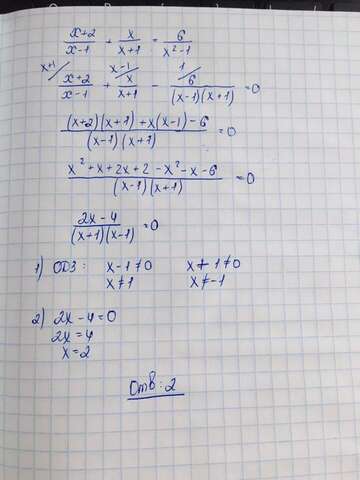 x+2/x-1 + x/x+1 = 6/x²-1
x+1/ x+2/x-1 + x-1/ x/x+1 - 1/ 6/(x-1)(x+1) = 0
(x+2)(x+1)+x(x-1)-6/(x-1)(x+1) = 0
x²+x+2x+2-x²-x-6/(x-1)(x+1) = 0
2x-4/(x+1)(x-1) = 0
1) ОДЗ: x-1≠0 x+1≠0
x≠1 x≠-1
2) 2x-4=0
2x=4
x=2
Отв: 2